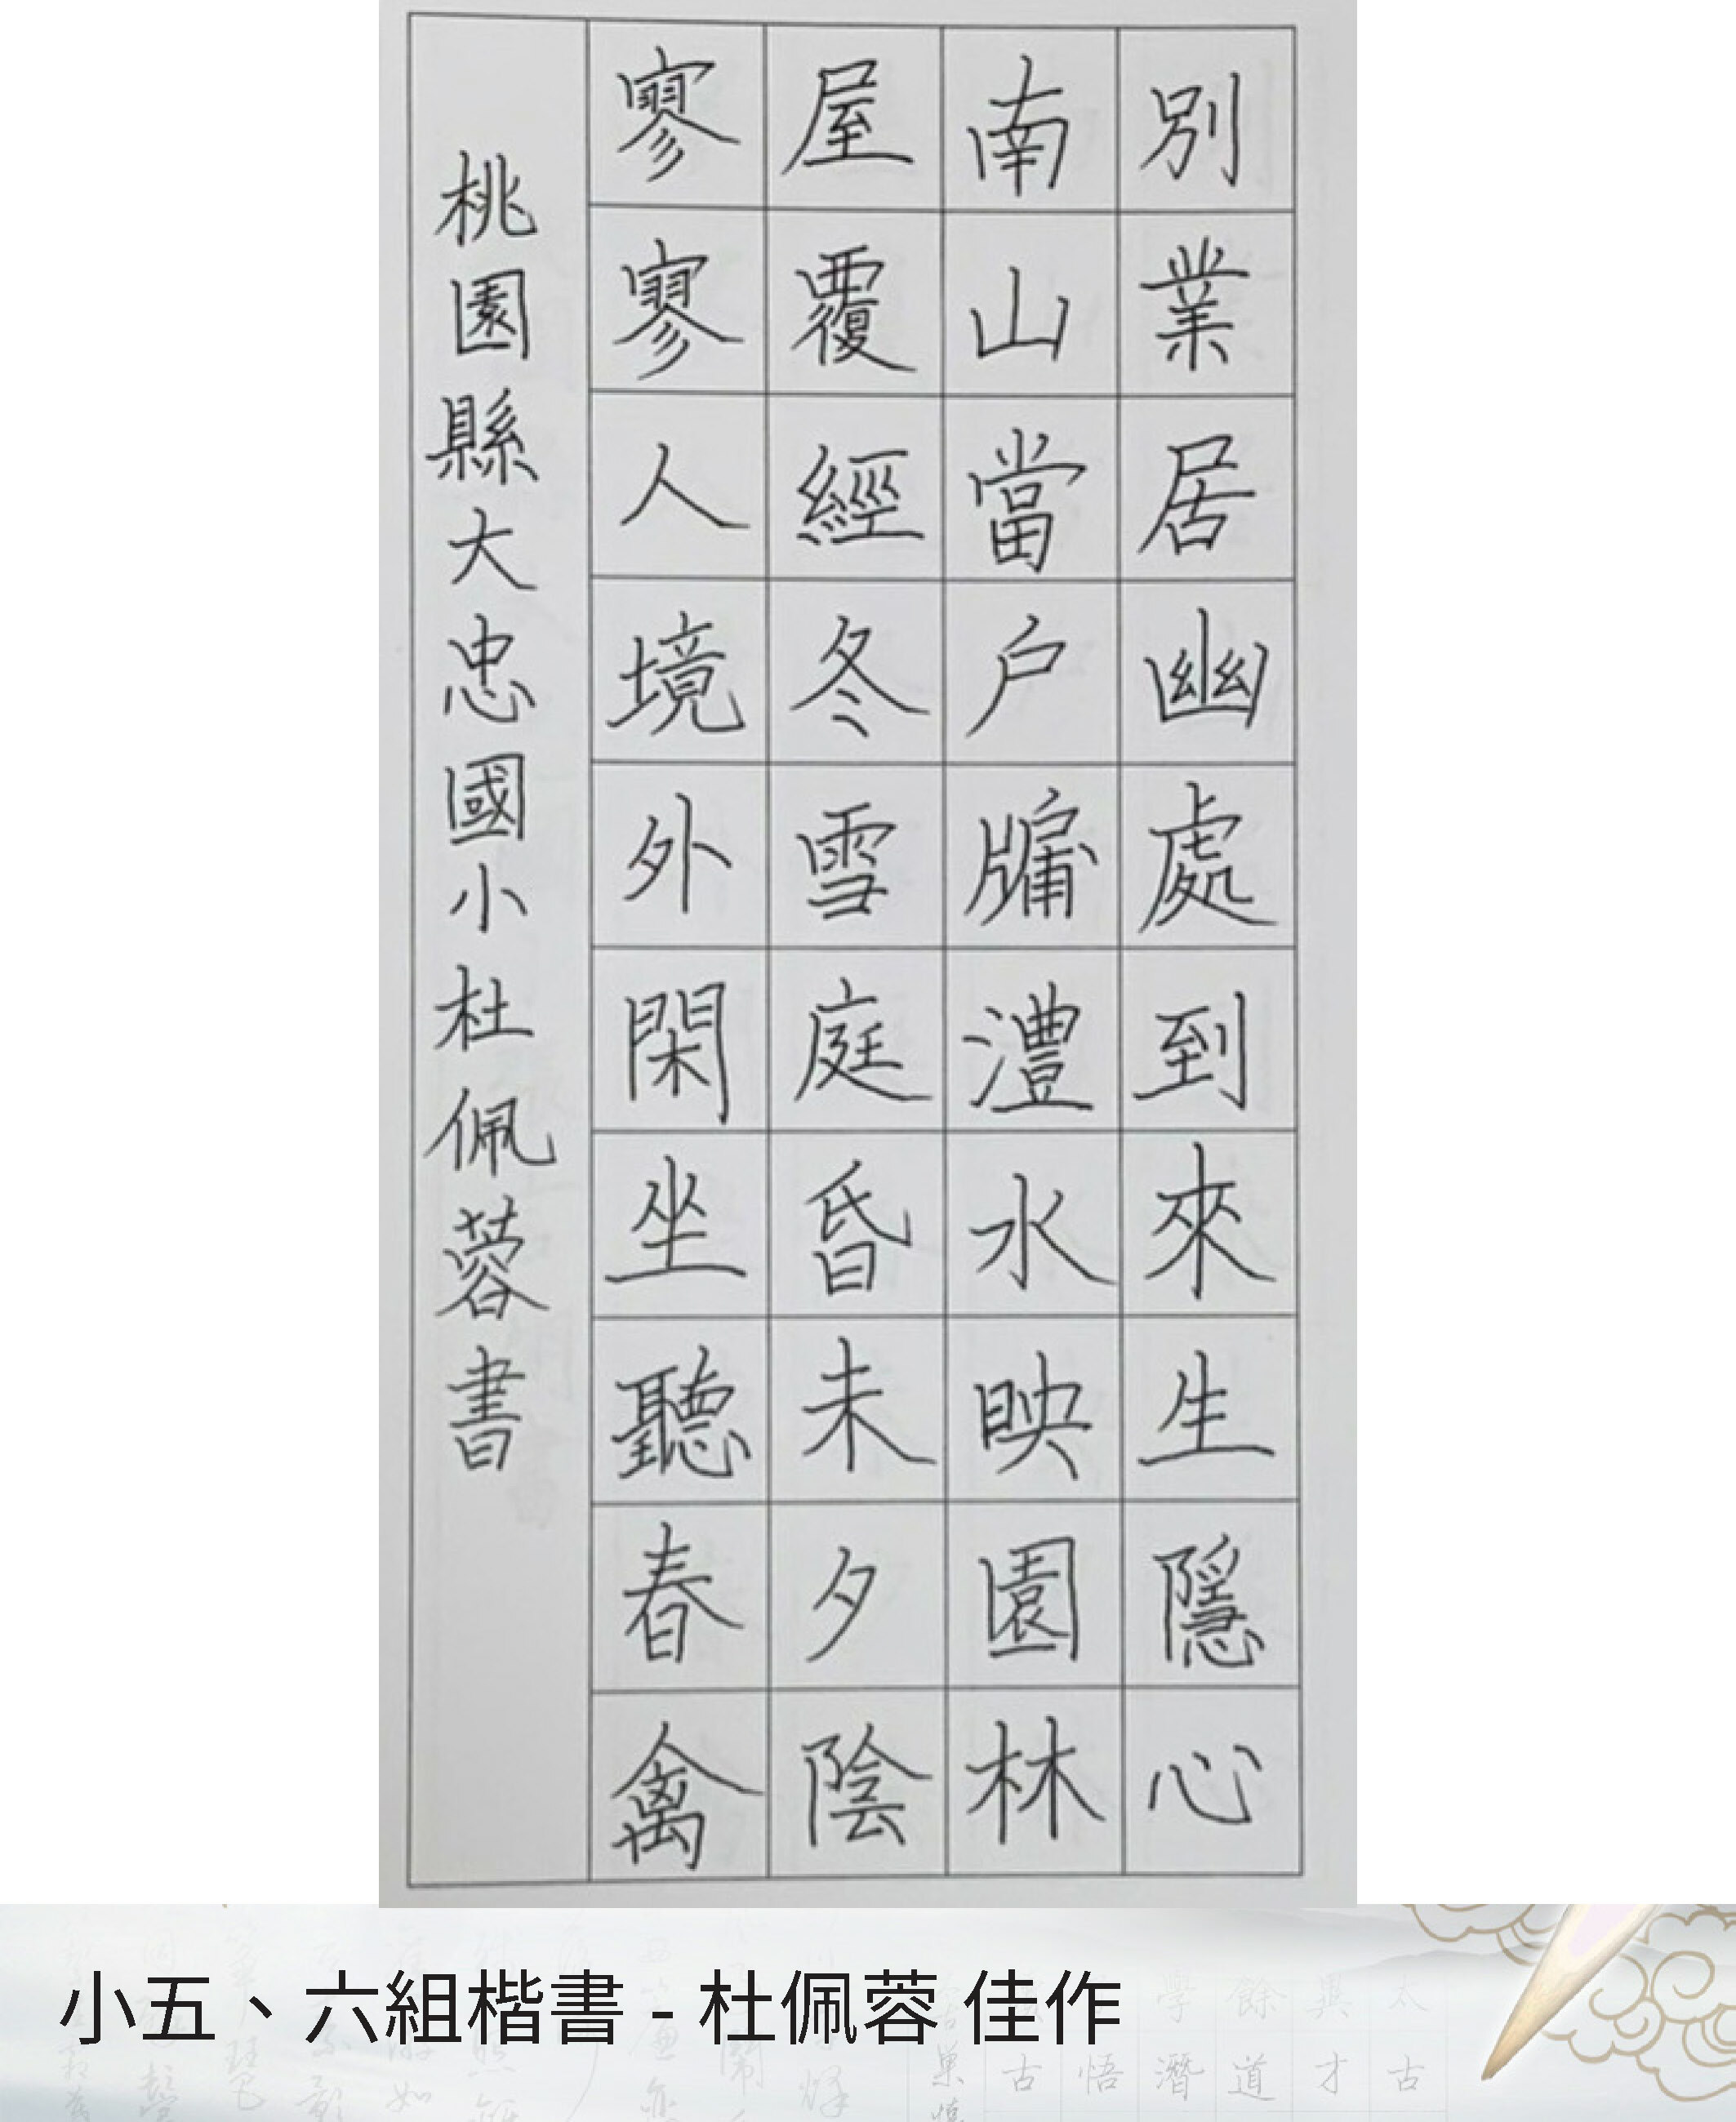 別業居幽處到來生隱心
南山當户牖澧水映園林
屋覆經冬雪庭昏未夕陰
寥寥人境外閑坐聽春禽
桃園縣大忠國小杜佩蓉書
小五、六組楷書 - 杜佩蓉 佳作